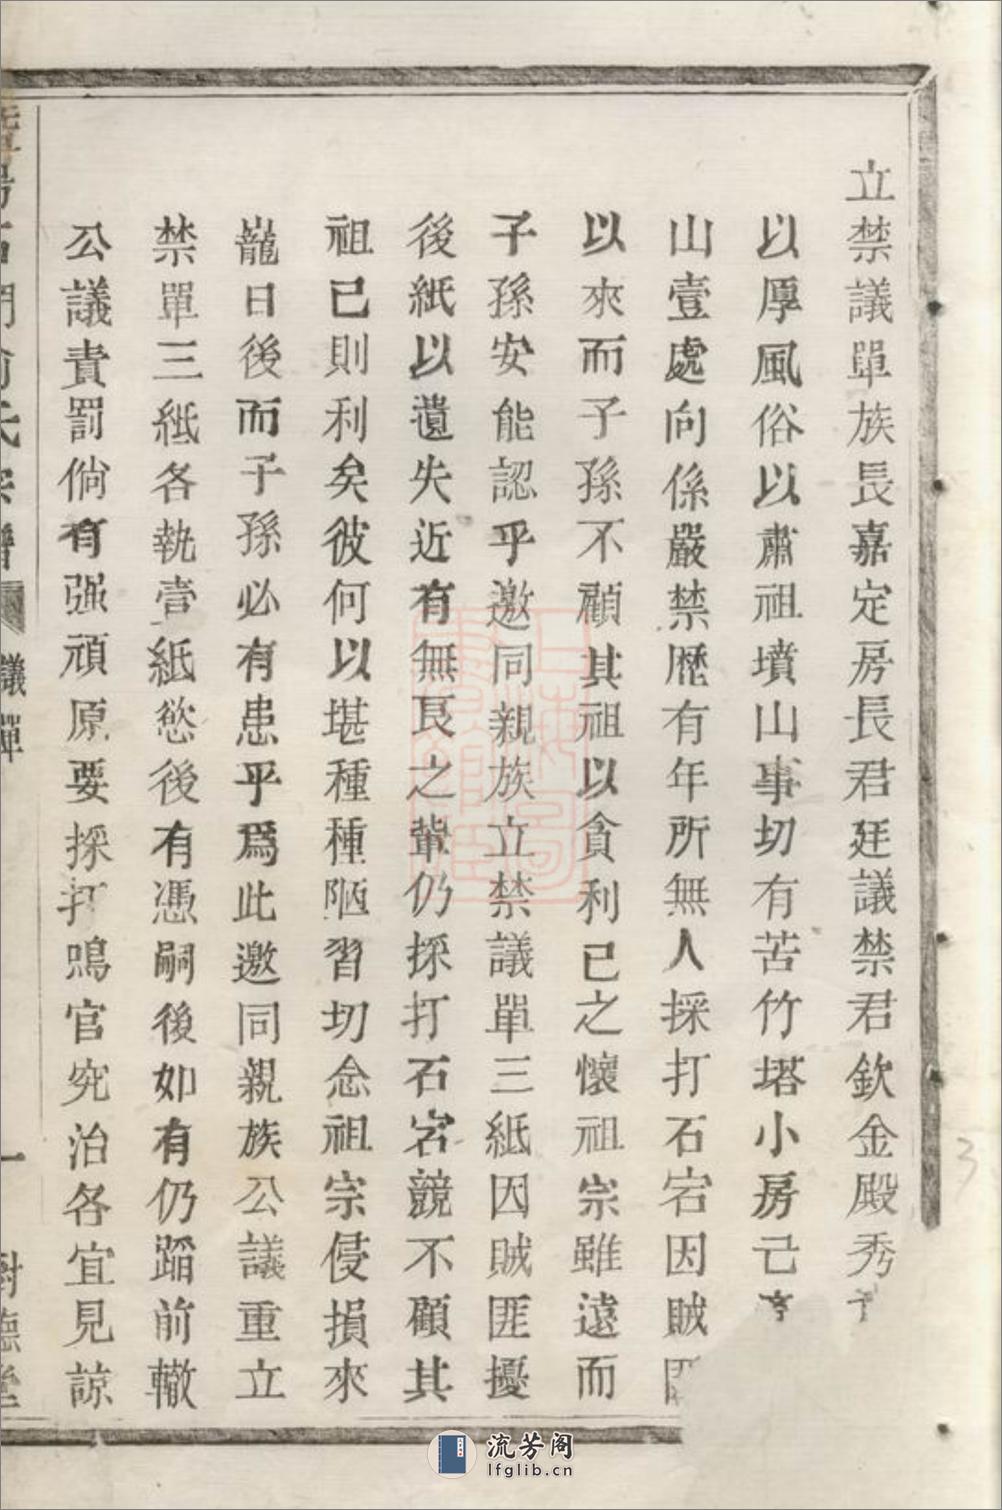 立禁議單族長嘉定房長君廷議禁君欽金殿秀
以厚風俗以肅祖墳山事切有苦竹塔小房己
山壹處向係嚴禁歷有年所無人採打石宕因賊
以來而子孫不顧其祖以貪利己之懷祖宗雖遠而
子孫安能認乎邀同親族立禁議單三紙因賊匪擾
後紙以遺失近有無良之軰仍採打石宕競不顧其
祖已則利矣彼何以堪種種陋習切念祖宗侵損來
巃日後而子孫必有患乎爲此邀同親族公議重立
禁單三紙各執壹紙慾後有憑嗣後如有仍蹈前轍
公議責罰倘有强頑原要採打鳴官究治各宜見諒
氏宗譜
議單
一
樹德堂
流芳阁
lfglib.cn